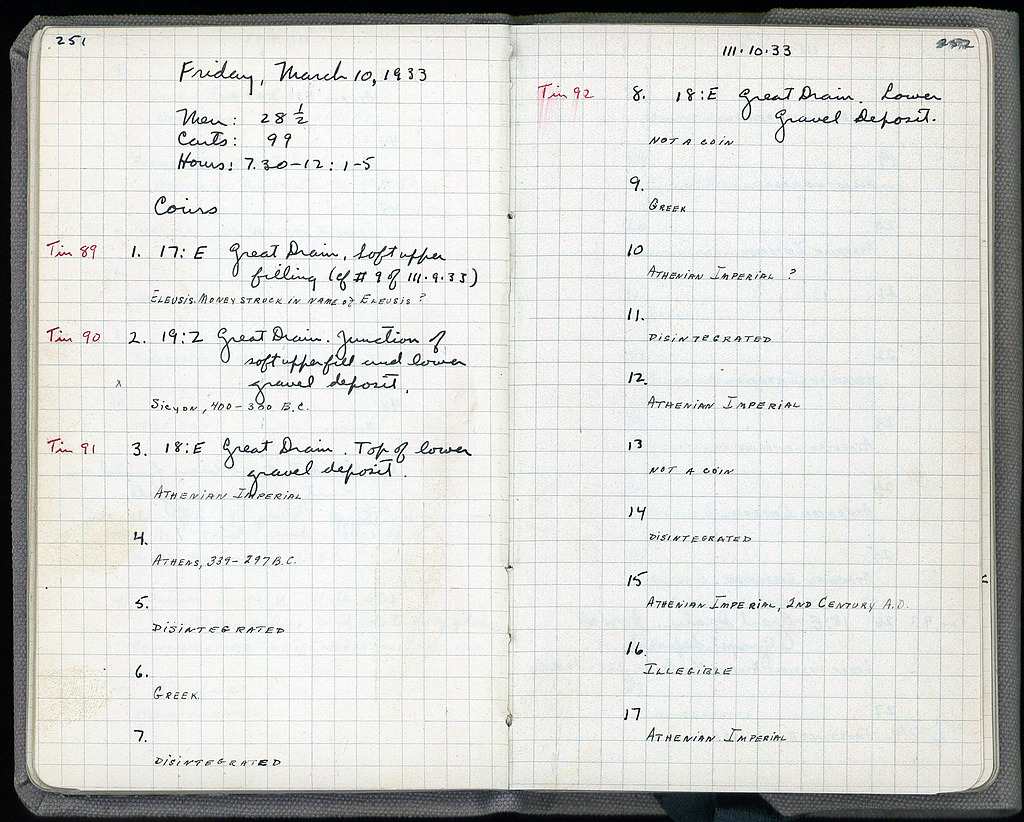 251
Friday, March 10, 1933
Men: 28 ½
Carts: 99
Hours: 7.30-12: 1-5
Coins
Tin 89 1. 17:E Great Drain, Soft upper
filling (cf # 9 of III.9.33)
ELEUSIS. MONEY STRUCK IN NAME OF ELEUSIS ?
Tin 90 2. 19:Z Great Drain. Junction of
soft upper fill and lower
x gravel deposit.
SICYON, 400-300 B.C.
Tin 91 3. 18:E Great Drain. Top of lower
gravel deposit.
ATHENIAN IMPERIAL
4.
ATHENS, 339-297 B.C.
5.
DISINTEGRATED
6.
GREEK.
7.
DISINTEGRATED
III.10.33
252
Tin 92 8. 18:E Great Drain. Lower
Gravel Deposit.
NOT A COIN
9.
GREEK
10
ATHENIAN IMPERIAL ?
11.
DISINTEGRATED
12.
ATHENIAN IMPERIAL
13
NOT A COIN
14
DISINTEGRATED
15
ATHENIAN IMPERIAL, 2ND CENTURY A.D.
16.
ILLEGIBLE
17
ATHENIAN IMPERIAL